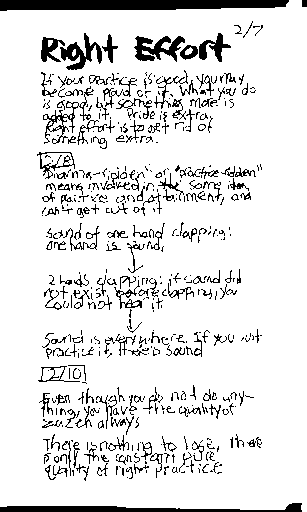 2/7
Right Effort
If your practice is good, you may
become proud of it. What you do
is good, but something more is
added to it. Pride is extra.
Right effort is to get rid of
something extra.
2/8
"Dharma-ridden" or "practice-ridden"
means involved in, the some idea
of practice and attainment, and
can't get out of it
Sound of one hand clapping:
one hand is sound,
2 hands clapping: if sound did
not exist before clapping, you
could not hear it.
Sound is everywhere. If you just
practice it, there is sound
2/10
Even though you do not do any-
thing, you have the quality of
zazen always
There is nothing to lose, there
is only the constant pure
quality of right practice